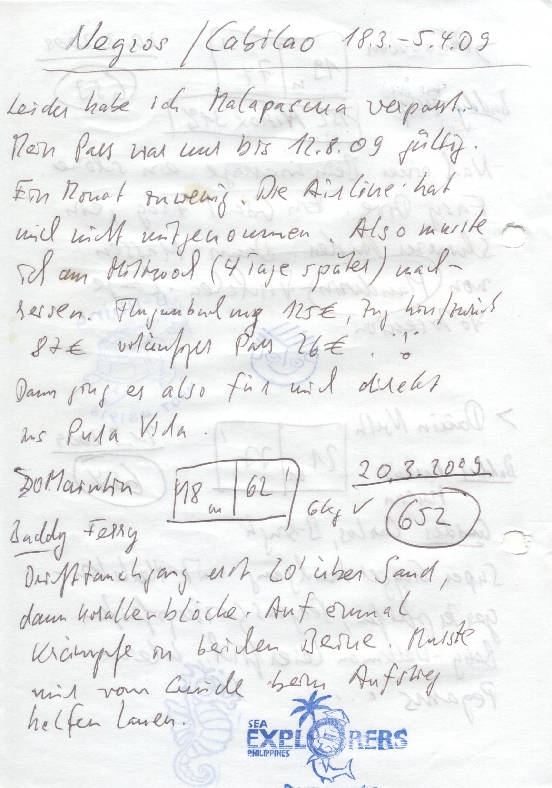 Negros / Cabilao 18.3.-5.4.09
Leider habe ich Malapascua verpasst.
Mein Pass war nur bis 12.8.09 gültig.
Ein Monat zu wenig. Die Airline hat
mich nicht mitgenommen. Also musste
ich am Mittwoch (4 Tage später) nach-
reisen. Flugumbuchung 125€, Zug hin/zurück
87€ vorläufiger Pass 26€.
Dann ging es also für mich direkt
ins Pura Vida.
20.3.2009
18 m 62 6kg ✓ 652
Buddy Ferry
Drifttauchgang erst 20' über Sand,
dann Korallenblöcke. Auf einmal
Krämpfe in beiden Beine. Musste
mir vom Guide beim Aufstieg
helfen lassen.
SEA
EXPLORERS
PHILIPPINES